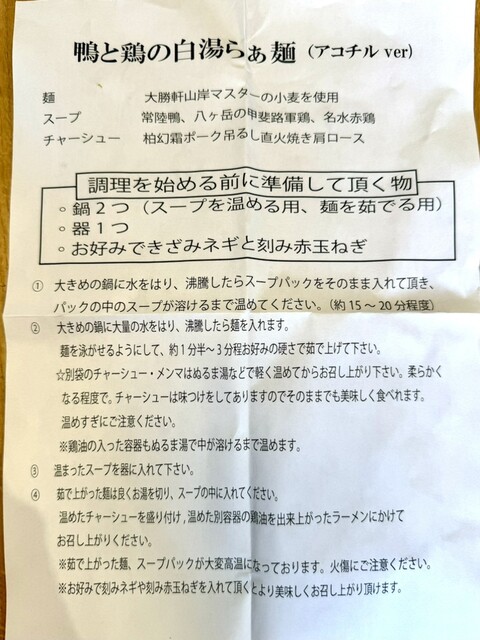 鴨と鶏の白湯らぁ麺（アコチル ver）
麺 大勝軒山岸マスターの小麦を使用
スープ 常陸鴨、八ヶ岳の甲斐路軍鶏、名水赤鶏
チャーシュー 柏幻霜ポーク吊るし直火焼き肩ロース
調理を始める前に準備して頂く物
◦ 鍋２つ（スープを温める用、麺を茹でる用）
◦ 器１つ
◦ お好みできざみネギと刻み赤玉ねぎ
① 大きめの鍋に水をはり、沸騰したらスープパックをそのまま入れて頂き、
パックの中のスープが溶けるまで温めてください。（約 15 〜 20 分程度）
② 大きめの鍋に大量の水をはり、沸騰したら麺を入れます。
麺を泳がせるようにして、約１分半〜３分程お好みの硬さで茹で上げて下さい。
☆別袋のチャーシュー・メンマはぬるま湯などで軽く温めてからお召し上がり下さい。柔らかく
なる程度で。チャーシューは味つけをしてありますのでそのままでも美味しく食べれます。
温めすぎにご注意ください。
※鶏油の入った容器もぬるま湯で中が溶けるまで温めます。
③ 温まったスープを器に入れて下さい。
④ 茹で上がった麺は良くお湯を切り、スープの中に入れてください。
温めたチャーシューを盛り付け , 温めた別容器の鶏油を出来上がったラーメンにかけて
お召し上がりください。
※茹で上がった麺、スープパックが大変高温になっております。火傷にご注意ください。
※お好みで刻みネギや刻み赤玉ねぎを入れて頂くとより美味しくお召し上がり頂けます。